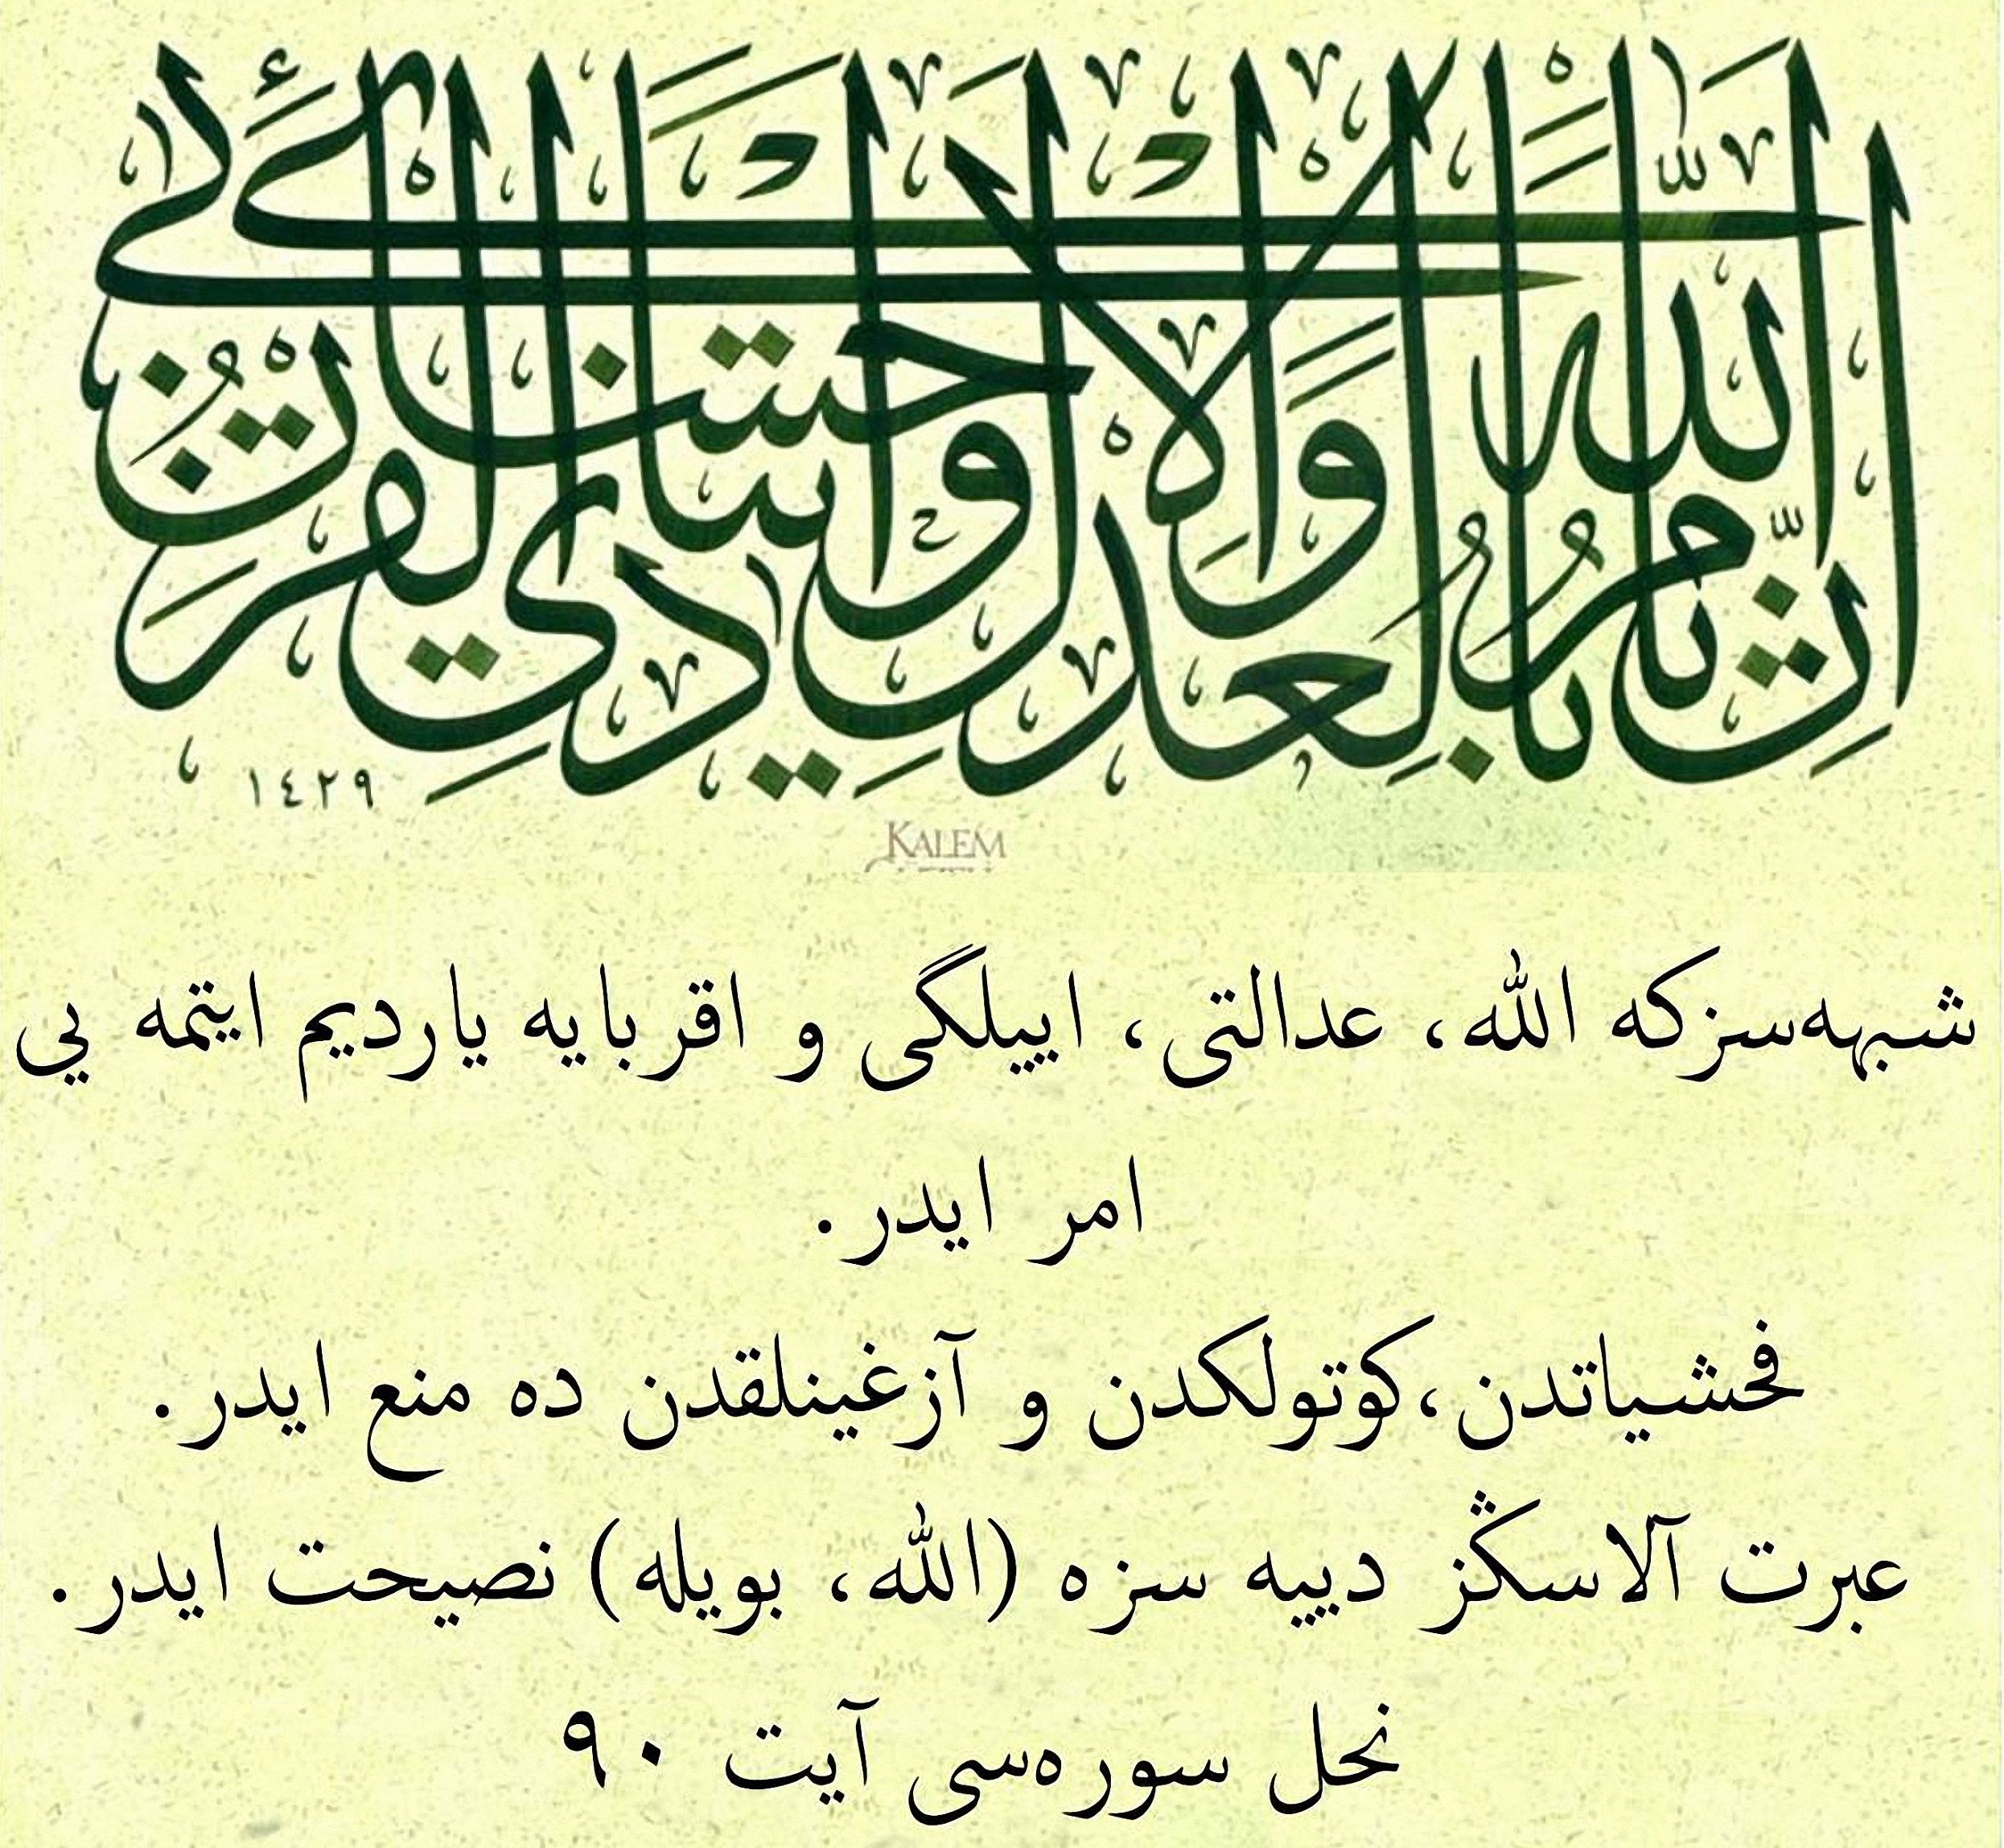 ان الله يأمر بالعدل والاحسان وايتائ ذي القربى
١٤٢٩
KALEM
شبهه‌سزكه الله، عدالتی، اییلگی و اقربایه یاردیم ایتمه یی
امر ایدر.
فحشیاتدن،كوتولكدن و آزغینلقدن ده منع ایدر.
عبرت آلاسڭز دییه سزه (الله، بویله) نصیحت ایدر.
نحل سوره‌سی آیت ٩٠